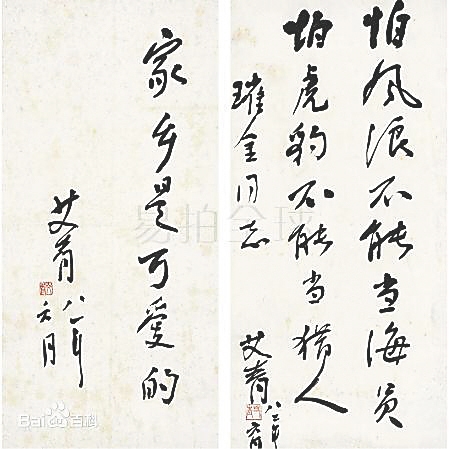 怕风浪不能当海员
怕虎豹不能当猎人
同志
艾青
八二年
家乡是可爱的
艾青
八一年
元月
易拍全球
Bai百科